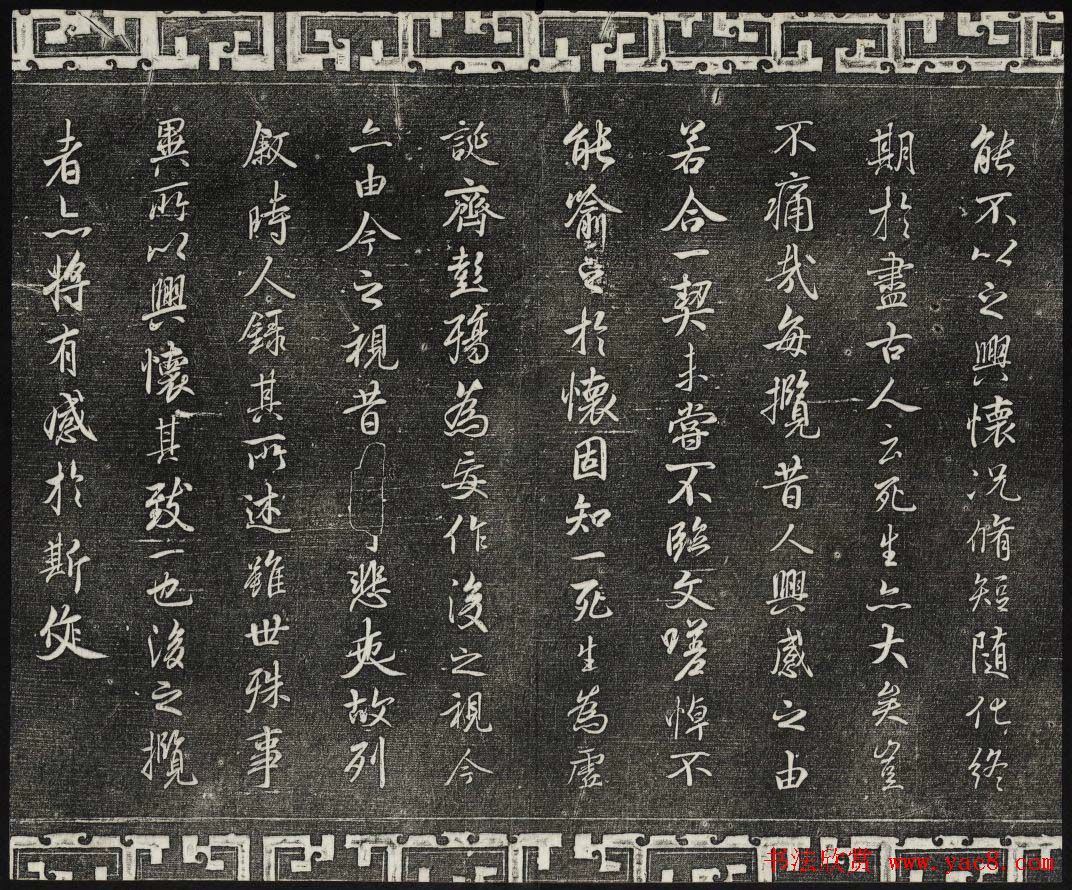 能不以之興懷況脩短隨化終
期於盡古人云死生亦大矣豈
不痛哉每攬昔人興感之由
若合一契未嘗不臨文嗟悼不
能喻之於懷固知一死生為虛
誕齊彭殤為妄作後之視今
亦由今之視昔悲夫故列
敘時人錄其所述雖世殊事
異所以興懷其致一也後之攬
者亦將有感於斯文
书法欣赏 www.yac8.com